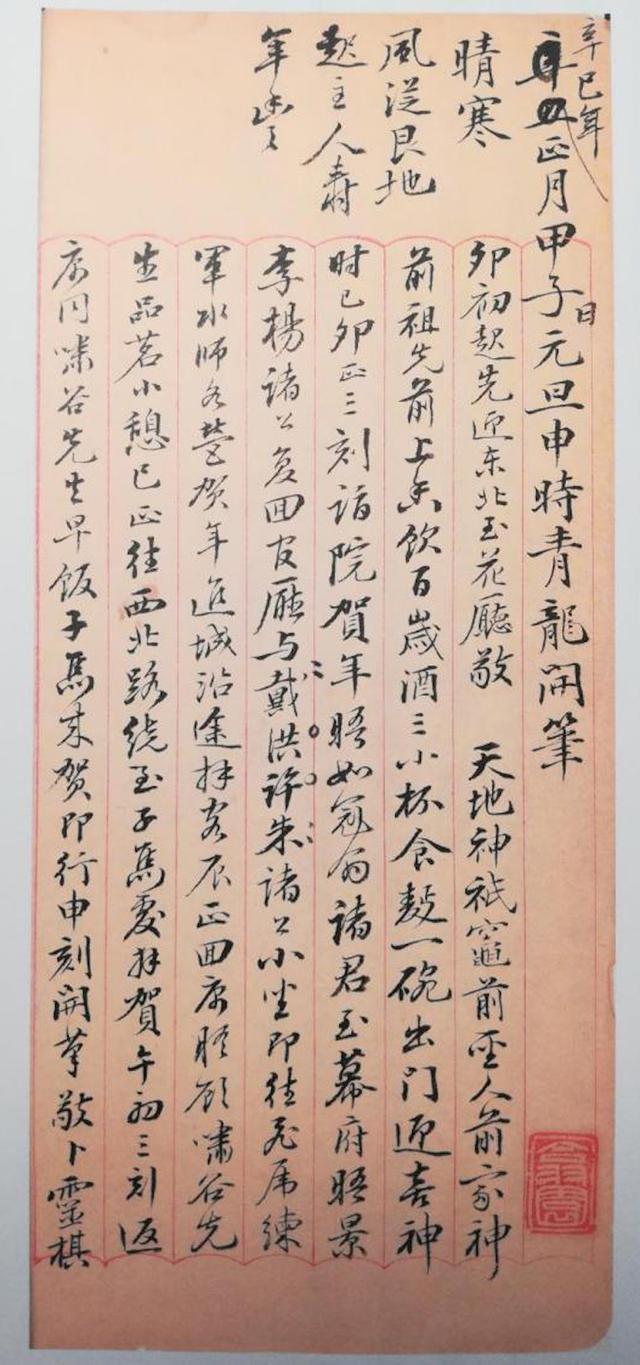 辛巳年
正月甲子日元旦申時青龍開筆
晴寒
風從艮地
起主人壽
年豐
卯初起先迎东北至花廳敬 天地神祇竈前聖人前家神
前祖先前上香飲百歲酒三小杯食麪一碗出門迎喜神
时已卯正三刻詣院賀年晤如冠翁諸君至幕府晤景
李楊諸公复回官廳与戴洪許朱諸公小坐即往飛虎練
軍水师各營贺年進城沿途拜客辰正回寓照願嘯谷先
生品茗小憩巳正往西北路绕至子馬處拜賀午初三刻返
寓同嘯谷先生早飯子馬来贺即行申刻開筆敬卜靈棋